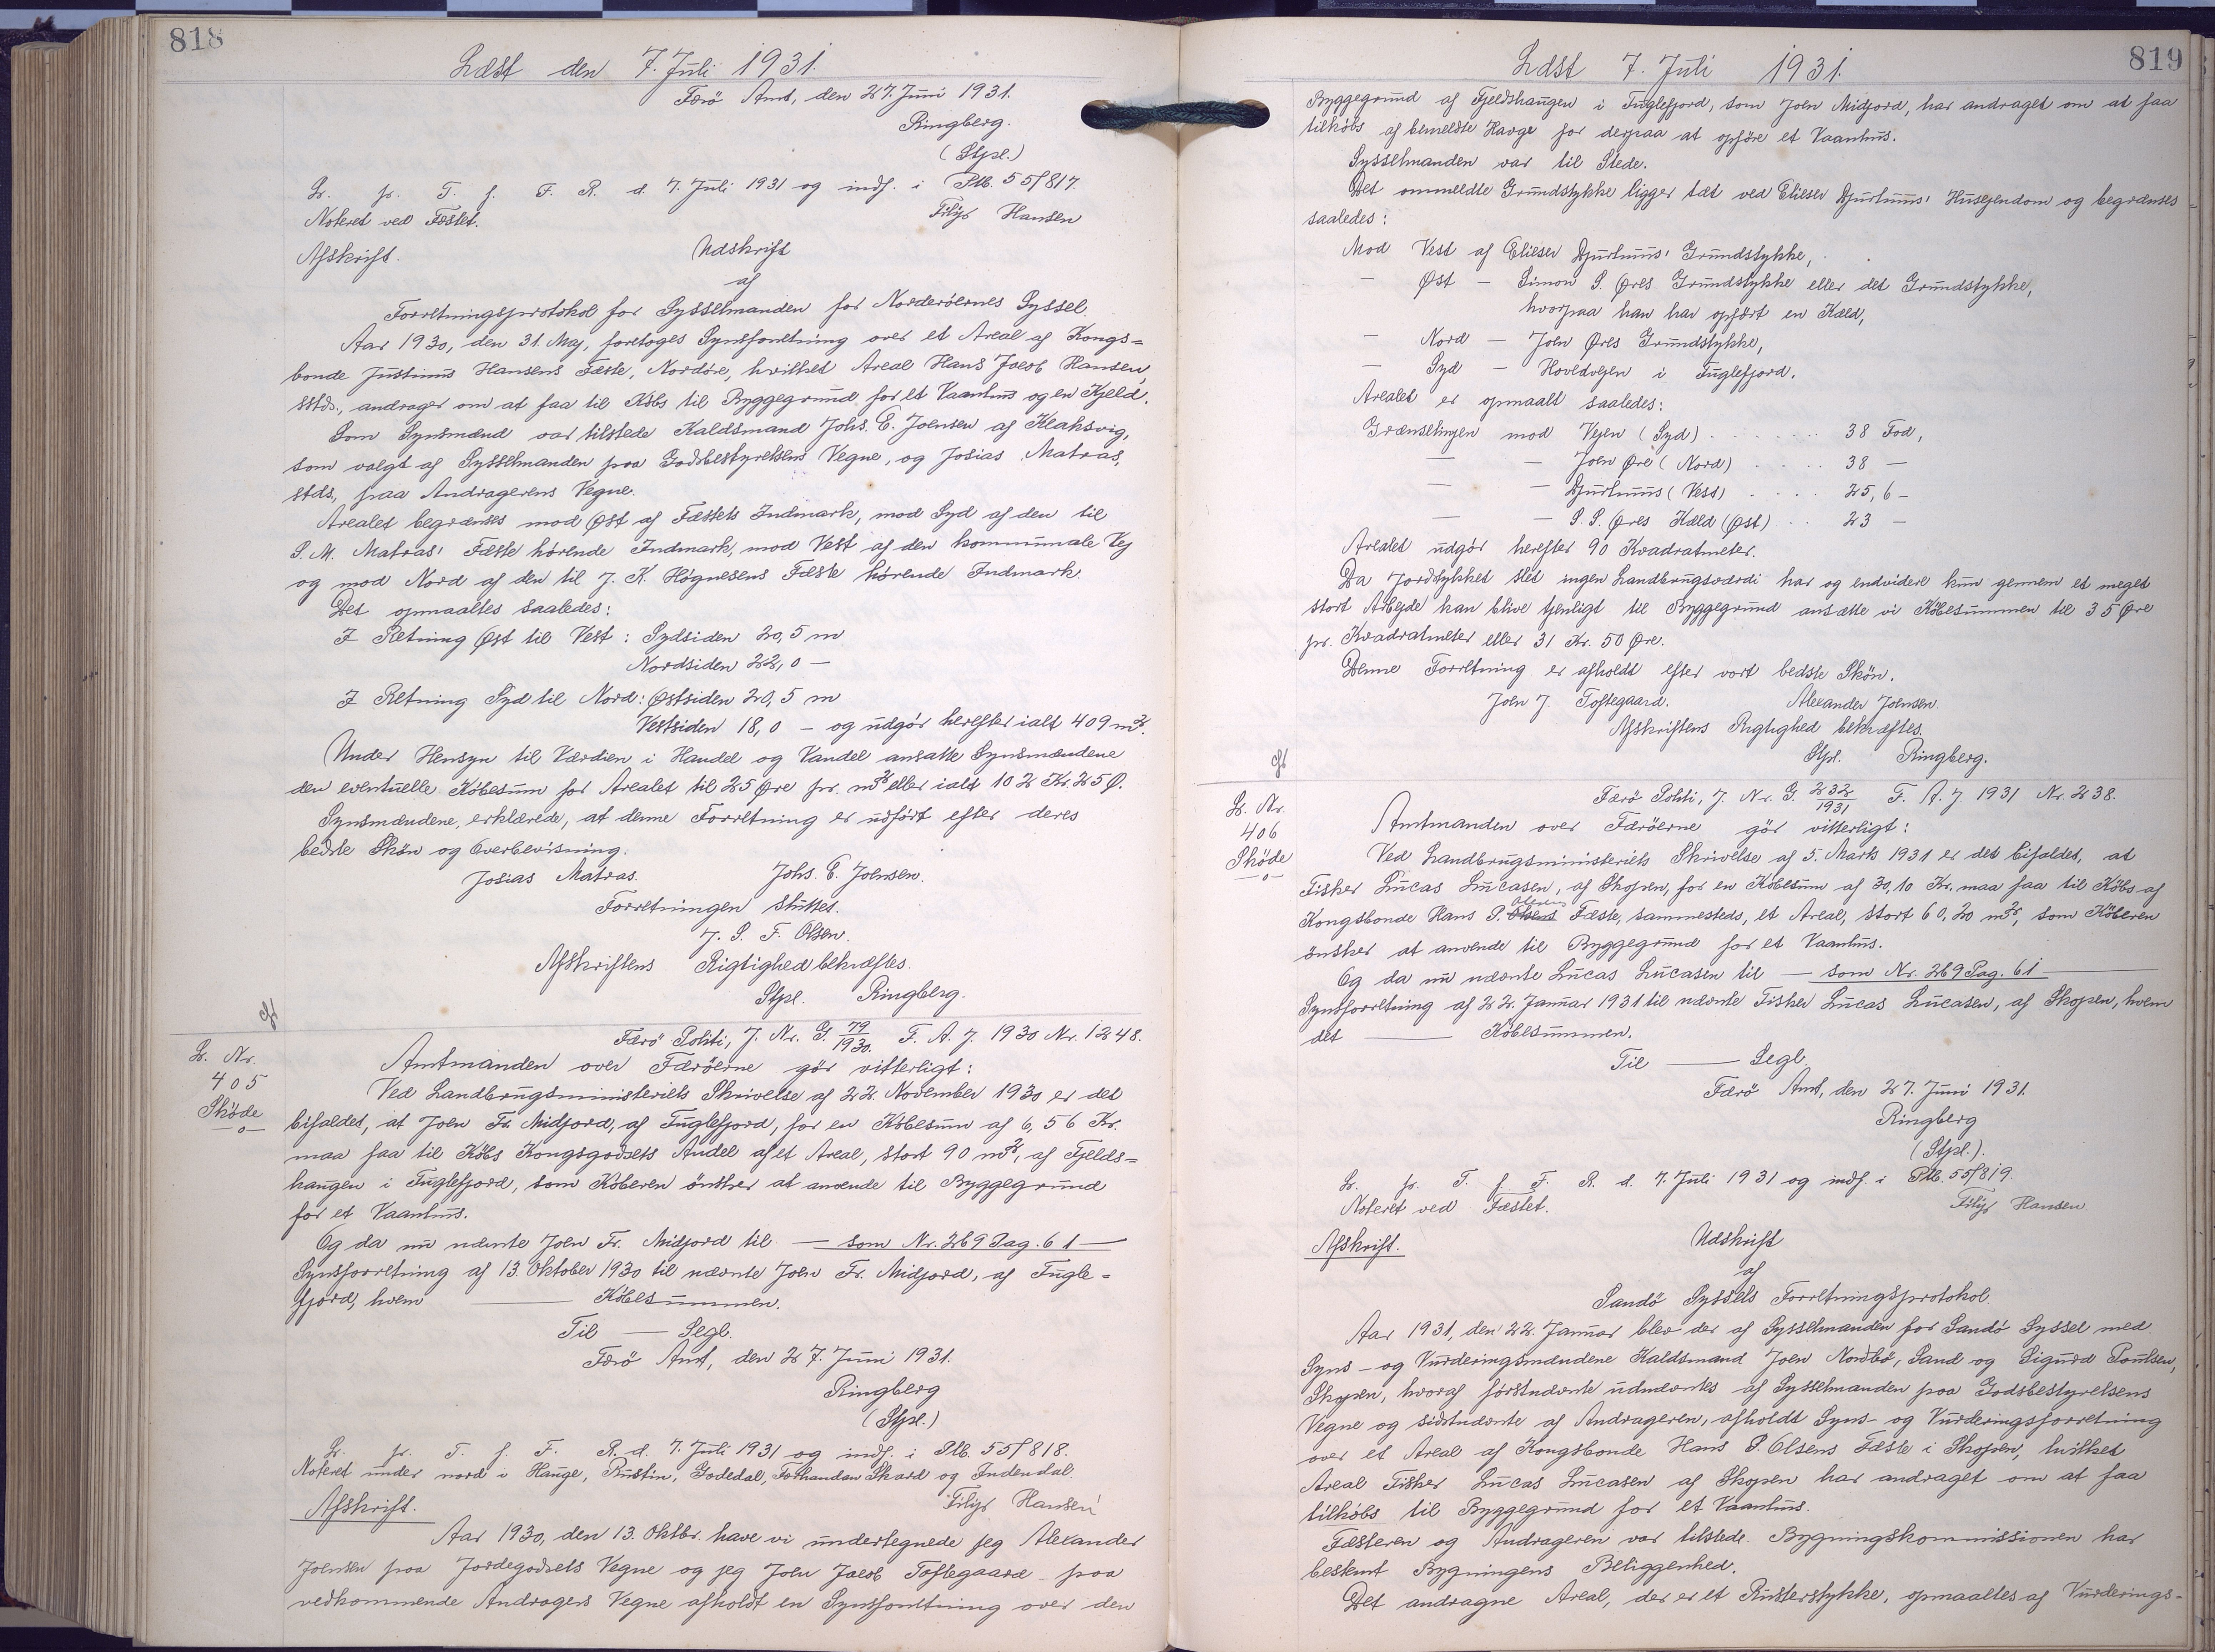 818
Læst den 7. Juli 1931.
Færö Amt, den 27. Juni 1931.
Ringberg.
(Stpl.)
L. pr. T. f. F. R. d. 7. Juli 1931 og indf. i Ptb. 55/817.
Noteret ved Fæstet.
Filip Hansen
Afskrift.
Udskrift
af
Forretningsprotokol for Sysselmanden for Norderöernes Syssel.
Aar 1930, den 31. Maj, foretoges Synsforretning over et Areal af Kongs=
bonde Justinus Hansens Fæste, Nordöre, hvilket Areal Hans Jacob Hansen,
sstds., andrager om at faa til Købs til Byggegrund for et Vaanhus og en Kjeld.
Som Synsmænd var tilstede Kaldsmand Johs. E. Joensen af Klaksvig,
som valgt af Sysselmanden paa Godsbestyrelsens Vegne, og Josias Matras,
stds., paa Andragerens Vegne.
Arealet begrænses mod Øst af Fæstets Indmark, mod Syd af den til
S. M. Matras' Fæste hörende Indmark, mod Vest af den kommunale Vej
og mod Nord af den til J. K. Høgnesens Fæste hörende Indmark.
Det opmaaltes saaledes:
I Retning Øst til Vest: Sydsiden 20,5 m
Nordsiden 22,0 —
I Retning Syd til Nord: Østsiden 20,5 m
Vestsiden 18,0 — og udgör herefter ialt 409 m².
Under Hensyn til Værdien i Handel og Vandel ansatte Synsmændene
den eventuelle Købesum for Arealet til 25 Øre pr. m² eller ialt 102 Kr. 25 Ø.
Synsmændene, erklærede, at denne Forretning er udfört efter deres
bedste Skön og Overbevisning.
Josias Matras. Johs. E. Joensen.
Forretningen sluttet.
J. S. F. Olsen.
Afskriftens Rigtighed bekræftes.
Stpl. Ringberg.
L. Nr.
405
Sköde
—o—
Færö Politi, J. Nr. G. 79/1930. F. A. J. 1930 Nr. 1248.
Amtmanden over Færöerne gör vitterligt:
Ved Landbrugsministeriets Skrivelse af 22. November 1930 er det
bifaldet, at Joen Fr. Midjord, af Fuglefjord, for en Købesum af 6,56 Kr.
maa faa til Købs Kongsgodsets Andel af et Areal, stort 90 m², af Fjelds=
haugen i Fuglefjord, som Køberen önsker at anvende til Byggegrund
for et Vaanhus.
Og da nu nævnte Joen Fr. Midjord til — som Nr. 269 Pag. 61 —
Synsforretning af 13. Oktober 1930 til nævnte Joen Fr. Midjord, af Fugle=
fjord, hvem —— Købesummen.
Til — Segl.
Færö Amt, den 27. Juni 1931.
Ringberg
(Stpl.)
L. pr. T. f. F. R. d. 7. Juli 1931 og indf. i Ptb. 55/818.
Noteret under nord i Hauge, Rustin, Godedal, Forhandan Skard og Indendal.
Filip Hansen
Afskrift.
Aar 1930, den 13. Oktbr. have vi undertegnede jeg Alexander
Joensen paa Jordegodsets Vegne og jeg Joen Jacob Toftegaard paa
vedkommende Andragers Vegne afholdt en Synsforretning over den
819
Læst 7. Juli 1931.
Byggegrund af Fjeldshaugen i Fuglefjord, som Joen Midjord, har andraget om at faa
tilkøbs af bemeldte Hauge for derpaa at opföre et Vaanhus.
Sysselmanden var til Stede.
Det ommeldte Grundstykke ligger tæt ved Elieser Djurhuus' Husejendom og begrænses
saaledes:
Mod Vest af Elieser Djurhuus' Grundstykke,
— Øst — Simon S. Øres Grundstykke eller det Grundstykke,
hvorpaa han har opfört en Kæld,
— Nord — Joen Øres Grundstykke,
— Syd — Hovedvejen i Fuglefjord.
Arealet er opmaalt saaledes:
Grænselinjen mod Vejen (Syd) . . . . . . 38 Fod,
— — Joen Øre (Nord) . . . . 38 —
— — Djurhuus (Vest) . . . . 25,6 —
— — S. S. Øres Kæld (Øst) . . 23 —
Arealet udgör herefter 90 Kvadratmeter.
Da Jordstykket slet ingen Landbrugsværdi har og endvidere kun gennem et meget
stort Arbejde kan blive tjenligt til Byggegrund ansætte vi Købesummen til 35 Øre
pr. Kvadratmeter eller 31 Kr. 50 Øre.
Denne Forretning er afholdt efter vort bedste Skön.
Joen J. Toftegaard. Alexander Joensen.
Afskriftens Rigtighed bekræftes.
Stpl. Ringberg.
L. Nr.
406
Sköde
—o—
Færö Politi, J. Nr. G. 232/1931 F. A. J. 1931 Nr. 238.
Amtmanden over Færöerne gör vitterligt:
Ved Landbrugsministeriets Skrivelse af 5. Marts 1931 er det bifaldet, at
Fisker Lucas Lucasen, af Skopen, for en Købesum af 30,10 Kr. maa faa til Købs af
Kongsbonde Hans P. Olsens Fæste, sammesteds, et Areal, stort 60,20 m², som Köberen
önsker at anvende til Byggegrund for et Vaanhus.
Og da nu nævnte Lucas Lucasen til — som Nr. 269 Pag. 61 —
Synsforretning af 22. Januar 1931 til nævnte Fisker Lucas Lucasen, af Skopen, hvem
det —— Købesummen.
Til —— Segl.
Færö Amt, den 27. Juni 1931.
Ringberg
(Stpl.).
L. pr. T. f. F. R. d. 7. Juli 1931 og indf. i Ptb. 55/819.
Noteret ved Fæstet.
Filip Hansen
Afskrift.
Udskrift
af
Sandö Syssels Forretningsprotokol.
Aar 1931, den 22. Januar blev der af Sysselmanden for Sandö Syssel med
Syns- og Vurderingsmændene Kaldsmand Joen Nordbö, Sand og Sigurd Poulsen,
Skopen, hvoraf förstnævnte udnævntes af Sysselmanden paa Godsbestyrelsens
Vegne og sidstnævnte af Andrageren, afholdt Syns- og Vurderingsforretning
over et Areal af Kongsbonde Hans P. Olsens Fæste i Skopen, hvilket
Areal Fisker Lucas Lucasen af Skopen har andraget om at faa
tilkøbs til Byggegrund for et Vaanhus.
Fæsteren og Andrageren var tilstede. Bygningskommissionen har
bestemt Bygningens Beliggenhed.
Det andragne Areal, der er et Rusterstykke, opmaaltes af Vurderings=